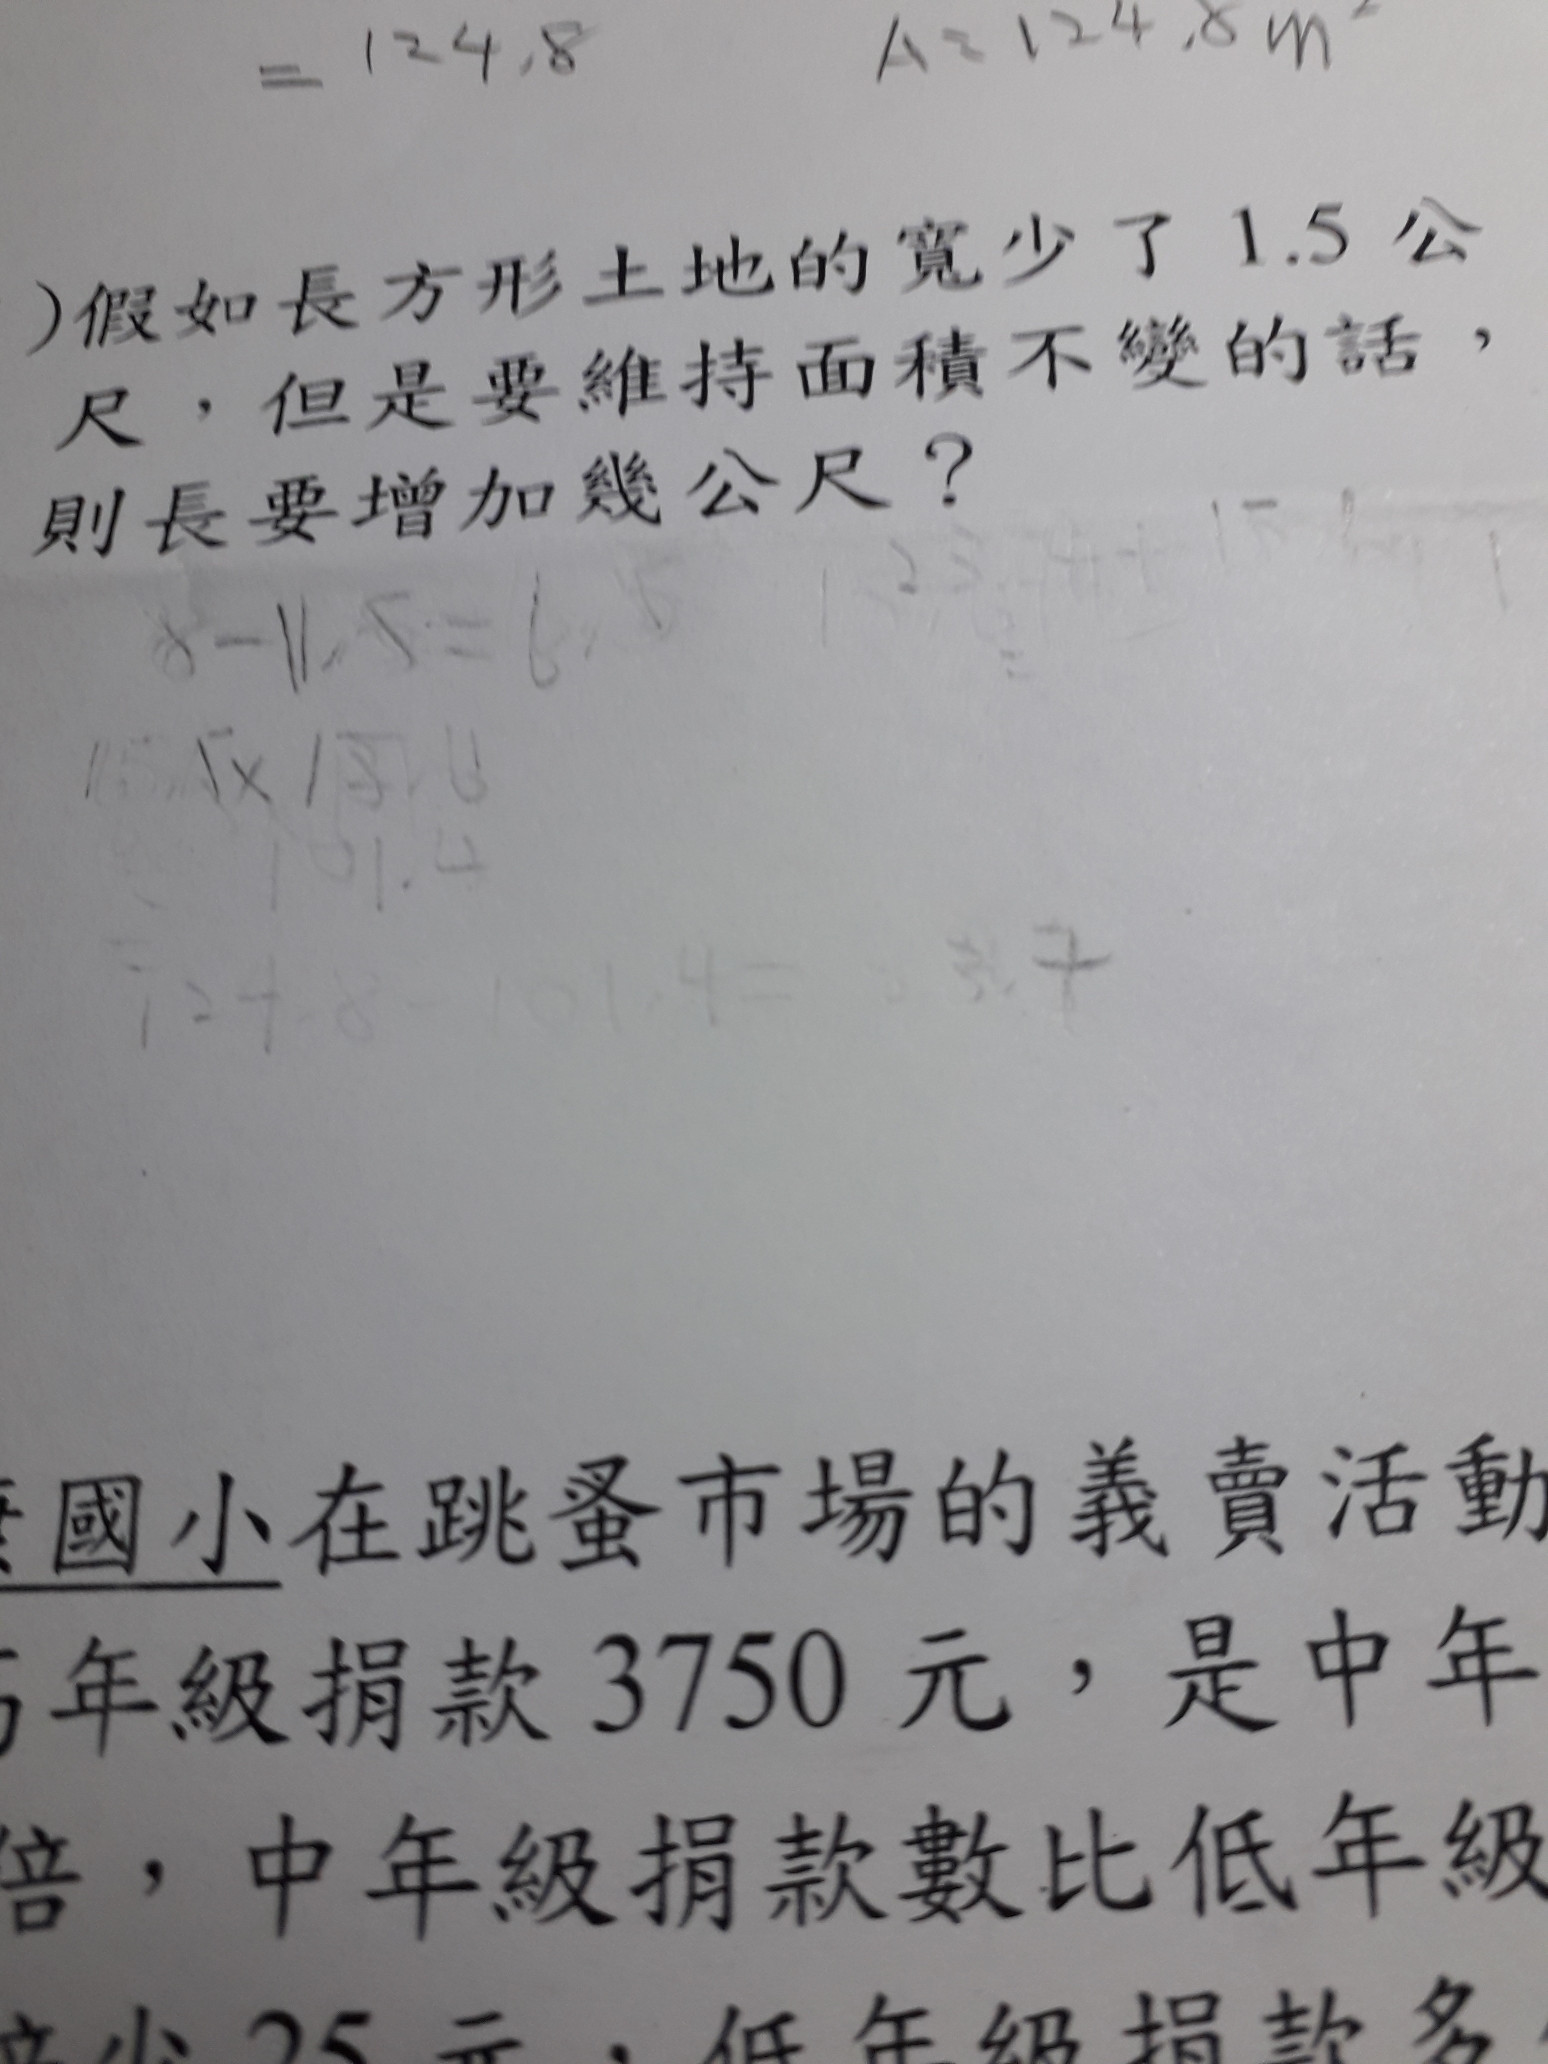 = 124.8 A=124.8m²
)假如長方形土地的寬少了1.5公
尺,但是要維持面積不變的話,
則長要增加幾公尺?
8-1.5=6.5
101.4
124.8-101.4= 3.4
國小在跳蚤市場的義賣活動
年級捐款3750元,是中年
倍,中年級捐款數比低年級
倍少25元,低年級捐款多